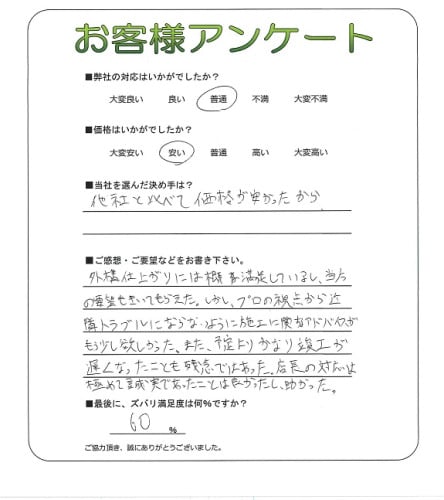 お客様アンケート
■弊社の対応はいかがでしたか?
大変良い 良い 普通 不満 大変不満
■価格はいかがでしたか?
大変安い 安い 普通 高い 大変高い
■当社を選んだ決め手は?
他社と比べて価格が安かったから。
■ご感想・ご要望などをお書き下さい。
外構仕上がりには概ね満足しているし、当方
の要望も聞いてもらえた。しかし、プロの視点から近
隣トラブルにならないように施工に関するアドバイスが
もう少し欲しかった。また、予定よりかなり竣工が
遅くなったことも残念ではあった。店長の対応は
極めて誠実であったことは良かったし、助かった。
■最後に、ズバリ満足度は何%ですか?
60 %
ご協力頂き、誠にありがとうございました。